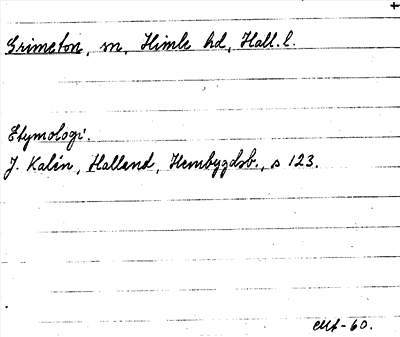 +
Grimeton, sn, Himle hd, Hall. l.
Etymologi.
J. Kalén, Halland, Hembygdsb., s 123.
-60.